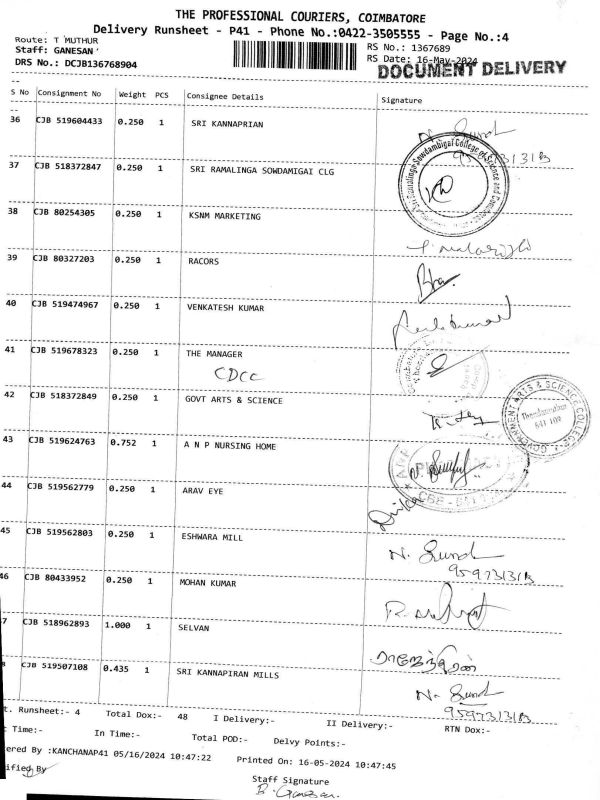 THE PROFESSIONAL COURIERS, COIMBATORE
Delivery Runsheet - P41 - Phone No.:0422-3505555 - Page No.:4
Route: T MUTHUR
RS No.: 1367689
Staff: GANESAN
RS Date: 16-May-2024
DRS No.: DCJB136768904
DOCUMENT DELIVERY
S No Consignment No Weight PCS Consignee Details Signature
36 CJB 519604433 0.250 1 SRI KANNAPRIAN
37 CJB 518372847 0.250 1 SRI RAMALINGA SOWDAMIGAI CLG
38 CJB 80254305 0.250 1 KSNM MARKETING
39 CJB 80327203 0.250 1 RACORS
40 CJB 519474967 0.250 1 VENKATESH KUMAR
41 CJB 519678323 0.250 1 THE MANAGER
CDCC
42 CJB 518372849 0.250 1 GOVT ARTS & SCIENCE
GOVERNMENT ARTS & SCIENCE COLLEGE
641 109
43 CJB 519624763 0.752 1 A N P NURSING HOME
44 CJB 519562779 0.250 1 ARAV EYE
45 CJB 519562803 0.250 1 ESHWARA MILL
9597313113
46 CJB 80433952 0.250 1 MOHAN KUMAR
7 CJB 518962893 1.000 1 SELVAN
ராஜேந்திரன்
CJB 519507108 0.435 1 SRI KANNAPIRAN MILLS
9597313113
t. Runsheet:- 4 Total Dox:- 48 I Delivery:- II Delivery:- RTN Dox:-
t Time:- In Time:- Total POD:- Delvy Points:-
tered By :KANCHANAP41 05/16/2024 10:47:22 Printed On: 16-05-2024 10:47:45
ified By
Staff Signature
B. Ganesan